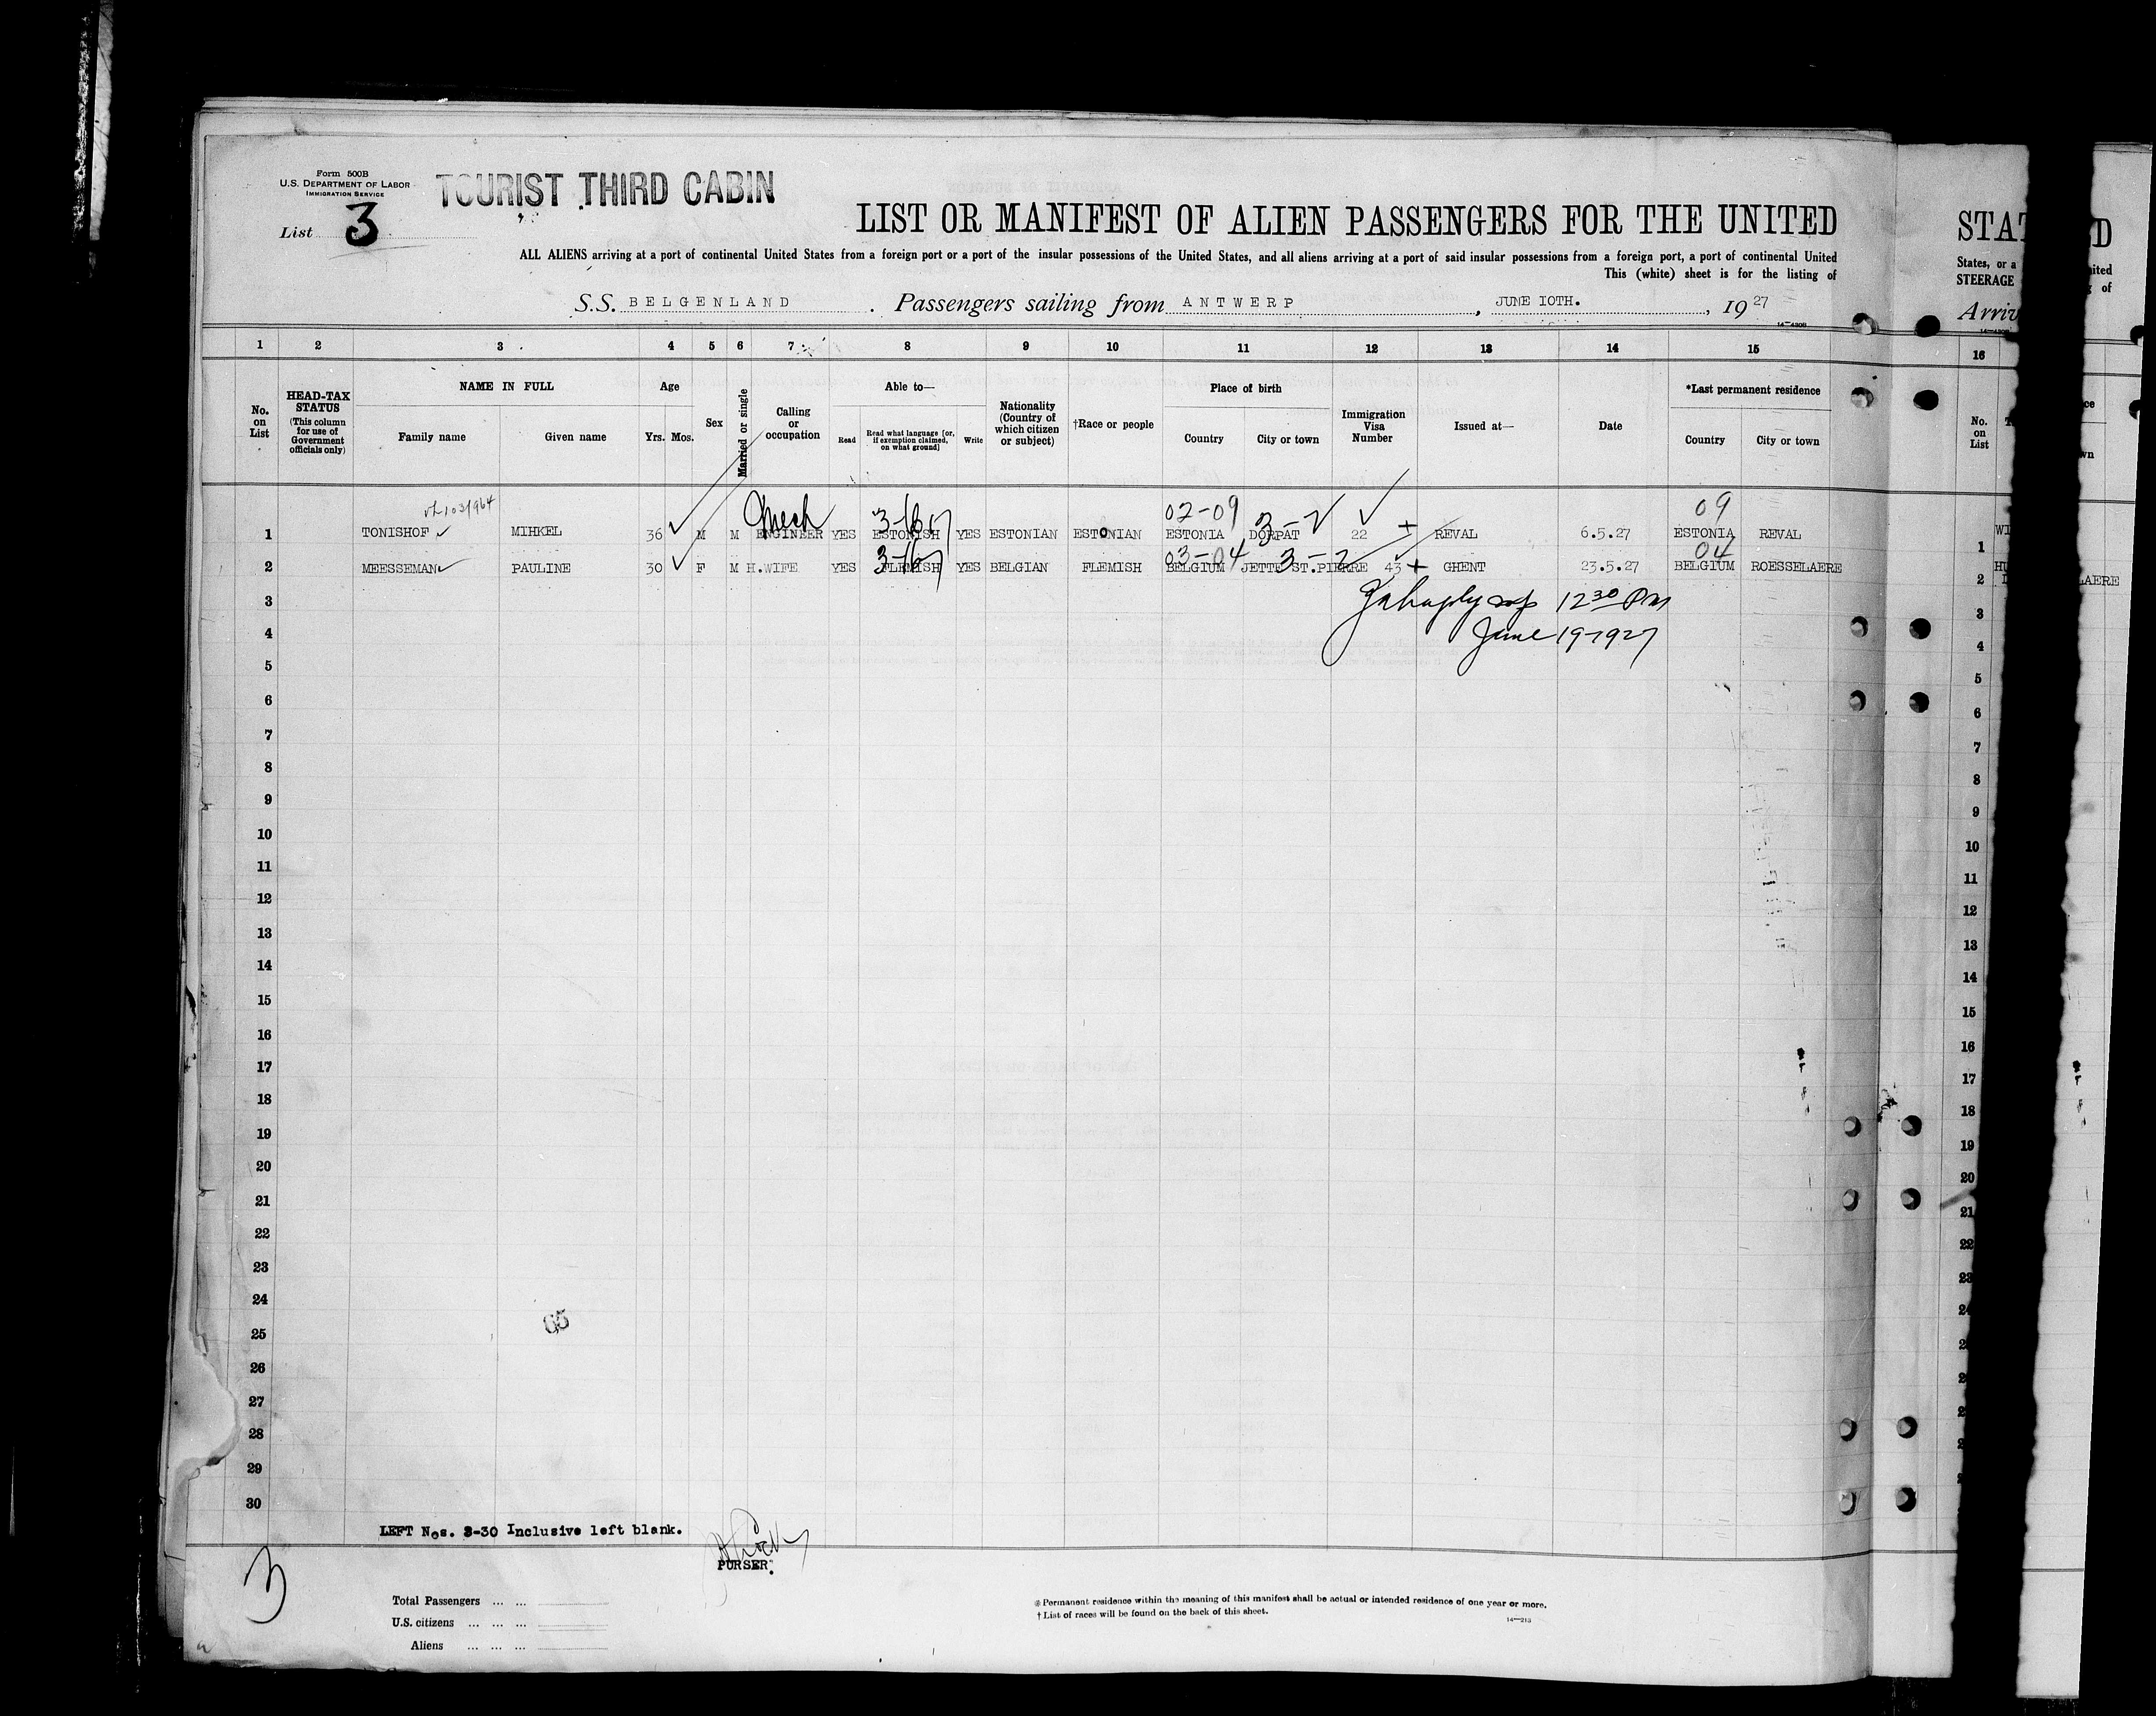 Form 500B
U.S. DEPARTMENT OF LABOR
IMMIGRATION SERVICE
TOURIST THIRD CABIN
List 3
LIST OR MANIFEST OF ALIEN PASSENGERS FOR THE UNITED
ALL ALIENS arriving at a port of continental United States from a foreign port or a port of the insular possessions of the United States, and all aliens arriving at a port of said insular possessions from a foreign port, a port of continental United
This (white) sheet is for the listing of
S.S. BELGENLAND. Passengers sailing from ANTWERP, JUNE IOTH., 1927
14—430B
STAT
States, or a
STEERAGE
Arriv
D
ited
of
1 2 3 4 5 6 7 8 9 10 11 12 13 14 15 16
No. on List
HEAD-TAX STATUS (This column for use of Government officials only)
NAME IN FULL
Family name Given name
Age
Yrs. Mos.
Sex
Married or single
Calling or occupation
Able to—
Read
Read what language [or, if exemption claimed, on what ground]
Write
Nationality (Country of which citizen or subject)
†Race or people
Place of birth
Country City or town
Immigration Visa Number
Issued at—
Date
*Last permanent residence
Country City or town
No. on List
Mech 02-09 3-2 09
1 TONISHOF MIHKEL 36 M M ENGINEER YES ESTONISH YES ESTONIAN ESTONIAN ESTONIA DORPAT 22 REVAL 6.5.27 ESTONIA REVAL
03-04 3-2 04
2 MEESSEMAN PAULINE 30 F M H.WIFE YES FLEMISH YES BELGIAN FLEMISH BELGIUM JETTE ST.PIERRE 43 GHENT 23.5.27 BELGIUM ROESSELAERE
LAERE
12 30 PM
June 19-1927
3
4
5
6
7
8
9
10
11
12
13
14
15
16
17
18
19
20
21
22
23
24
25
26
27
28
29
30
1
2
3
4
5
6
7
8
9
10
11
12
13
14
15
16
17
18
19
20
21
22
65
LEFT Nos. 3-30 Inclusive left blank.
PURSER.
3
Total Passengers ... ...
U.S. citizens ... ... ...
Aliens ... ... ...
*Permanent residence within the meaning of this manifest shall be actual or intended residence of one year or more.
†List of races will be found on the back of this sheet.
14—213